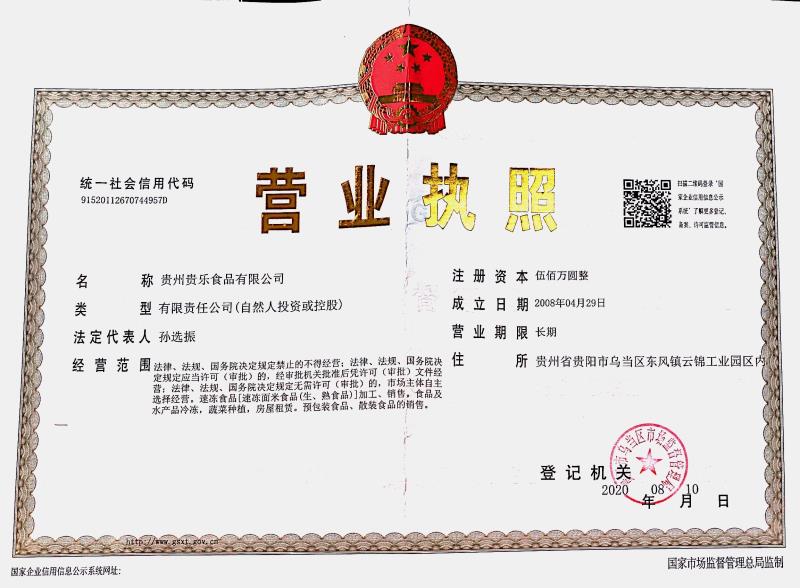 营业执照
统一社会信用代码
91520112670744957D
扫描二维码登录‘国
家企业信用信息公示
系统’了解更多登记、
备案、许可监管信息。
名 称 贵州贵乐食品有限公司
类 型 有限责任公司(自然人投资或控股)
法定代表人 孙选振
经营范围 法律、法规、国务院决定规定禁止的不得经营；法律、法规、国务院决
定规定应当许可（审批）的，经审批机关批准后凭许可（审批）文件经
营；法律、法规、国务院决定规定无需许可（审批）的，市场主体自主
选择经营。速冻食品[速冻面米食品(生、熟食品)]加工、销售。食品及
水产品冷冻，蔬菜种植，房屋租赁。预包装食品、散装食品的销售。
注册资本 伍佰万圆整
成立日期 2008年04月29日
营业期限 长期
住 所 贵州省贵阳市乌当区东风镇云锦工业园区内
登记机关
市乌当区市场监督管理局
2020 08 10
年 月 日
http://www.gsxt.gov.cn
国家企业信用信息公示系统网址:
国家市场监督管理总局监制